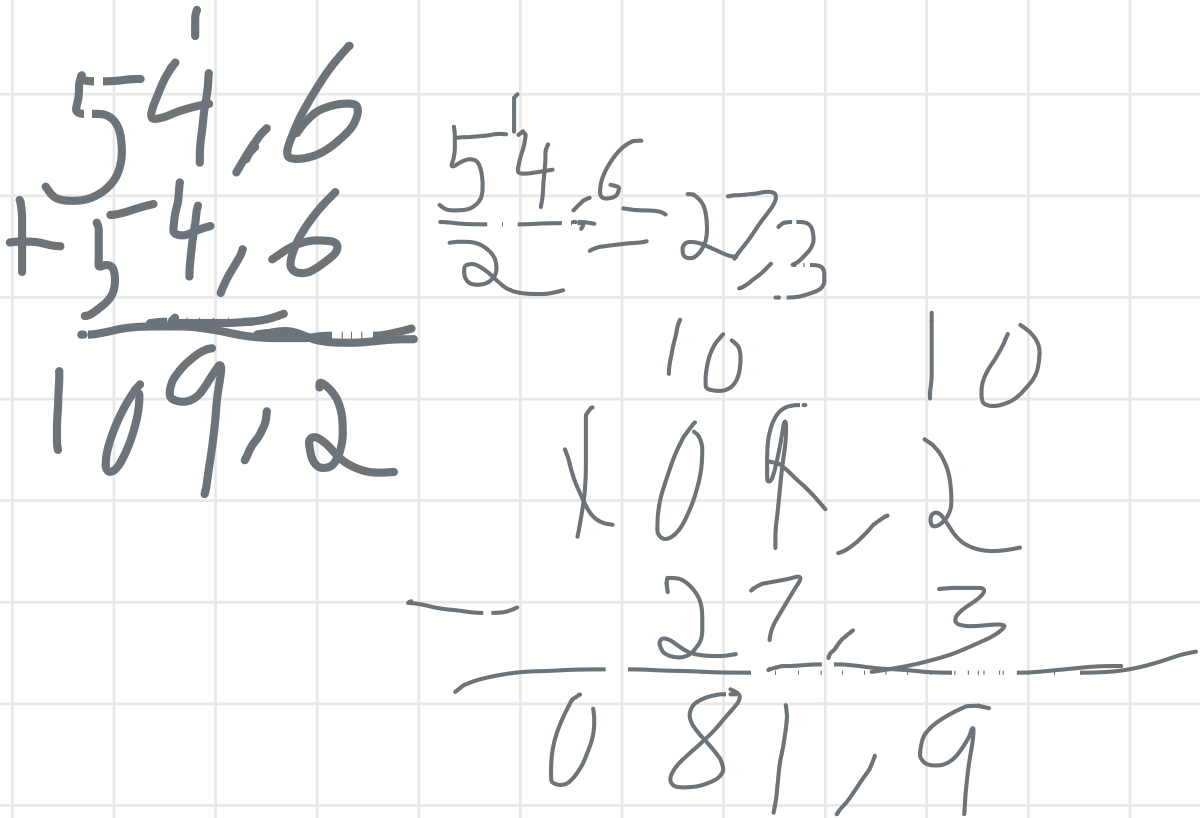 1
54,6
+54,6
109,2
1
54,6
2
=27,3
10 10
109,2
- 27,3
081,9